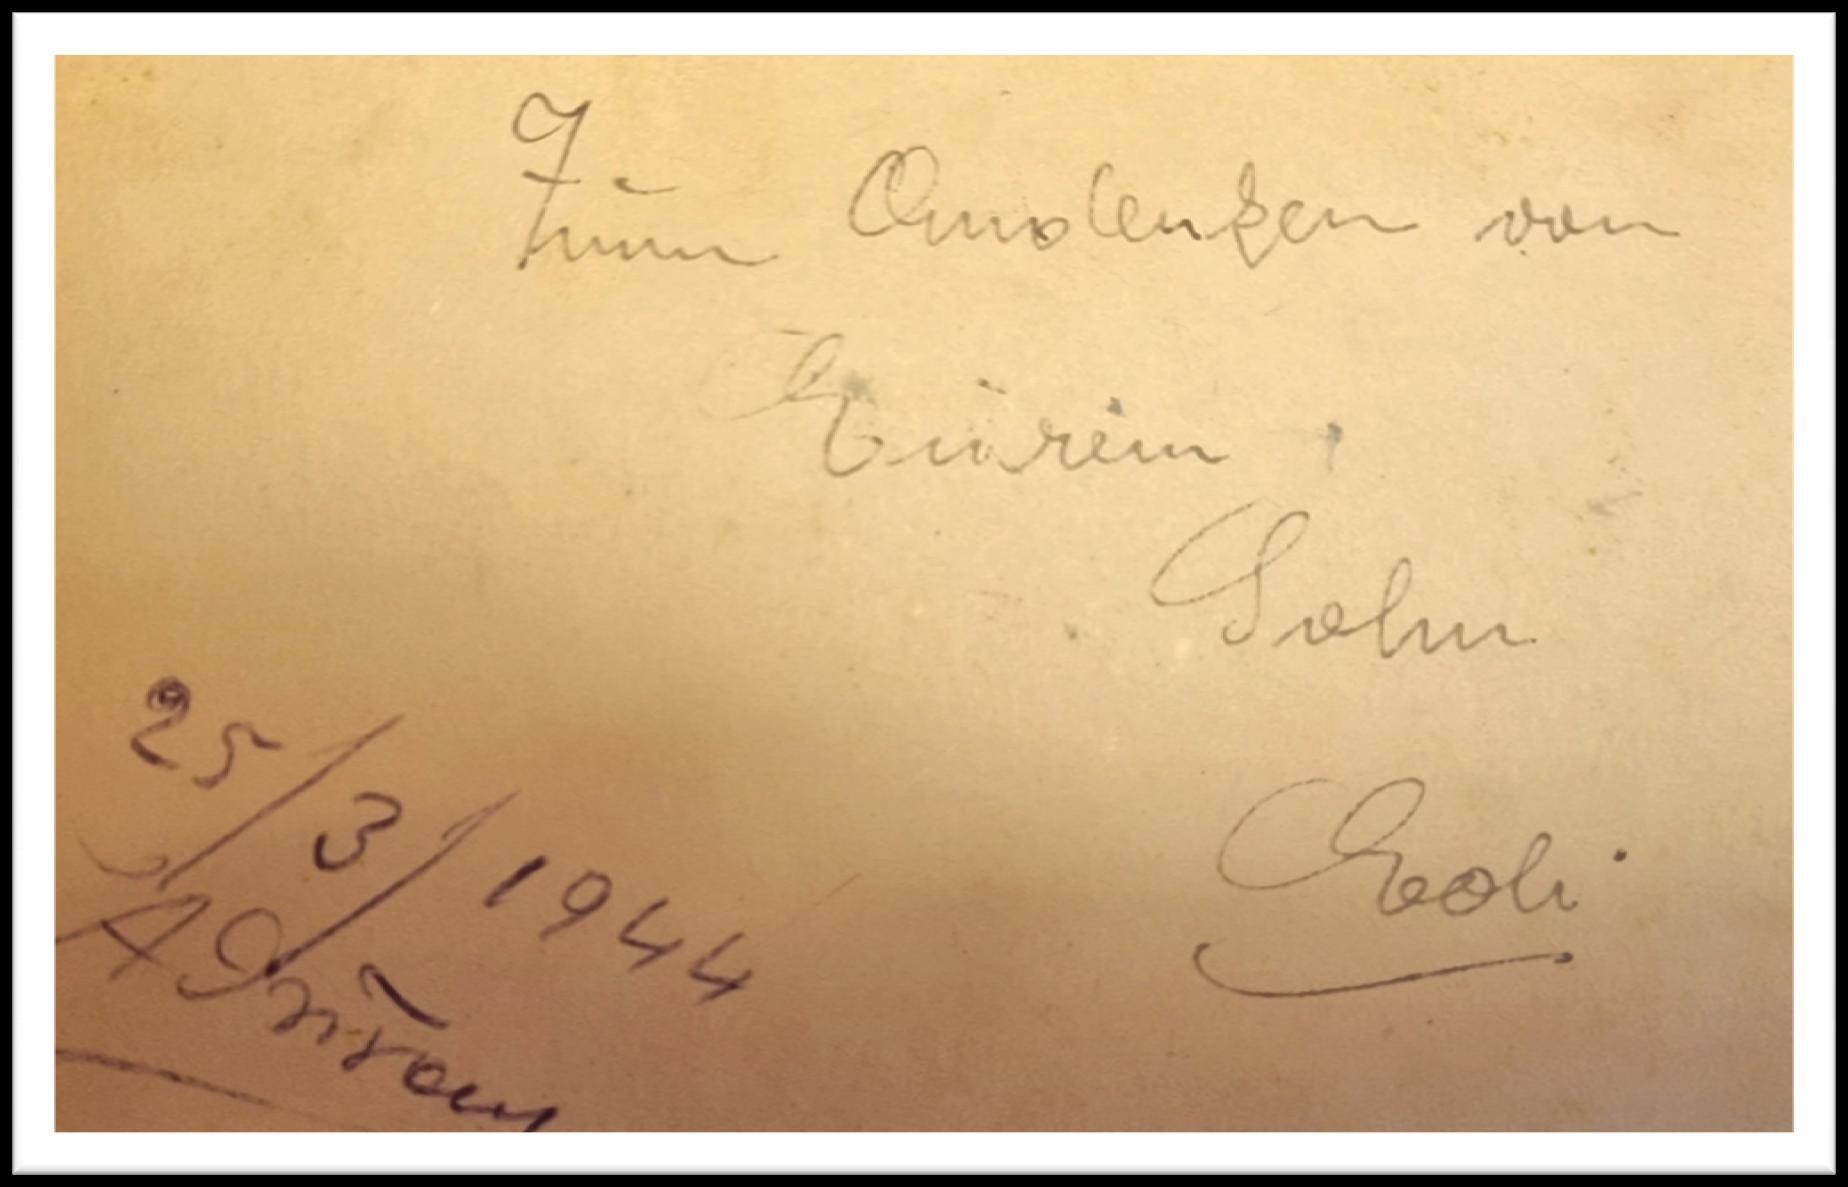 Zum Andenken von
Eurem
Sohn
Edi
25/3/1944